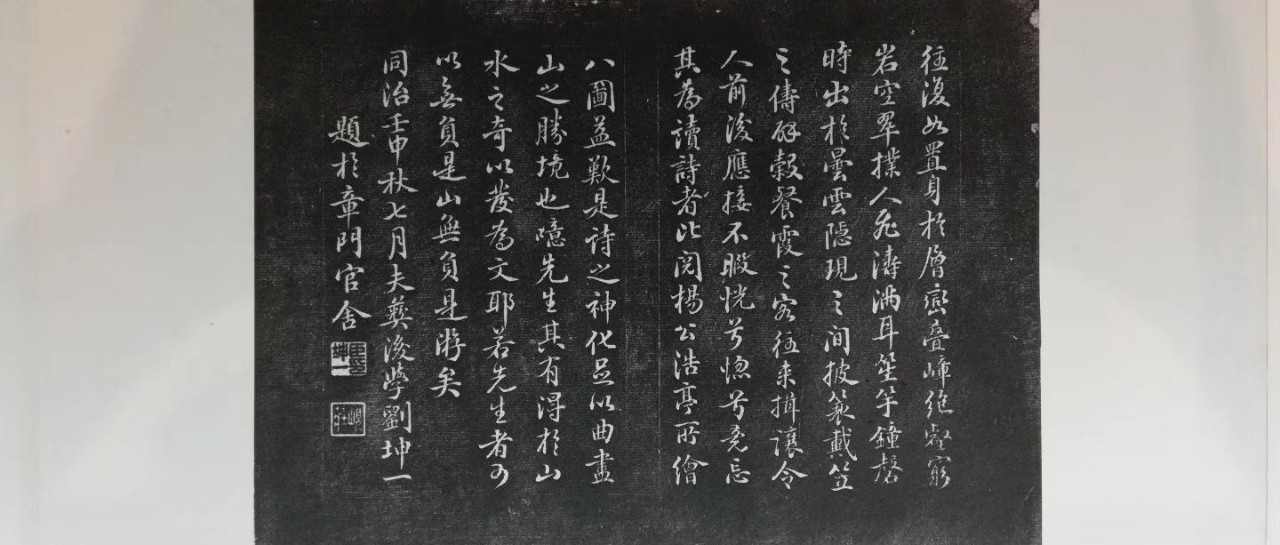 往復如置身於層巒疊嶂絕壑窮
岩空翠撲人飛濤滿耳笙竽鐘磬
時出於曇雲隱現之間披簑戴笠
之儔辟穀餐霞之客往来揖讓令
人前後應接不暇恍兮惚兮竟忘
其為讀詩者比閱楊公浩亭所繪
八圖益歎是詩之神化足以曲盡
山之勝境也噫先生其有得於山
水之奇以發為文耶若先生者可
以無負是山無負是游矣
同治壬申秋七月夫彝後學劉坤一
題於章門官舍